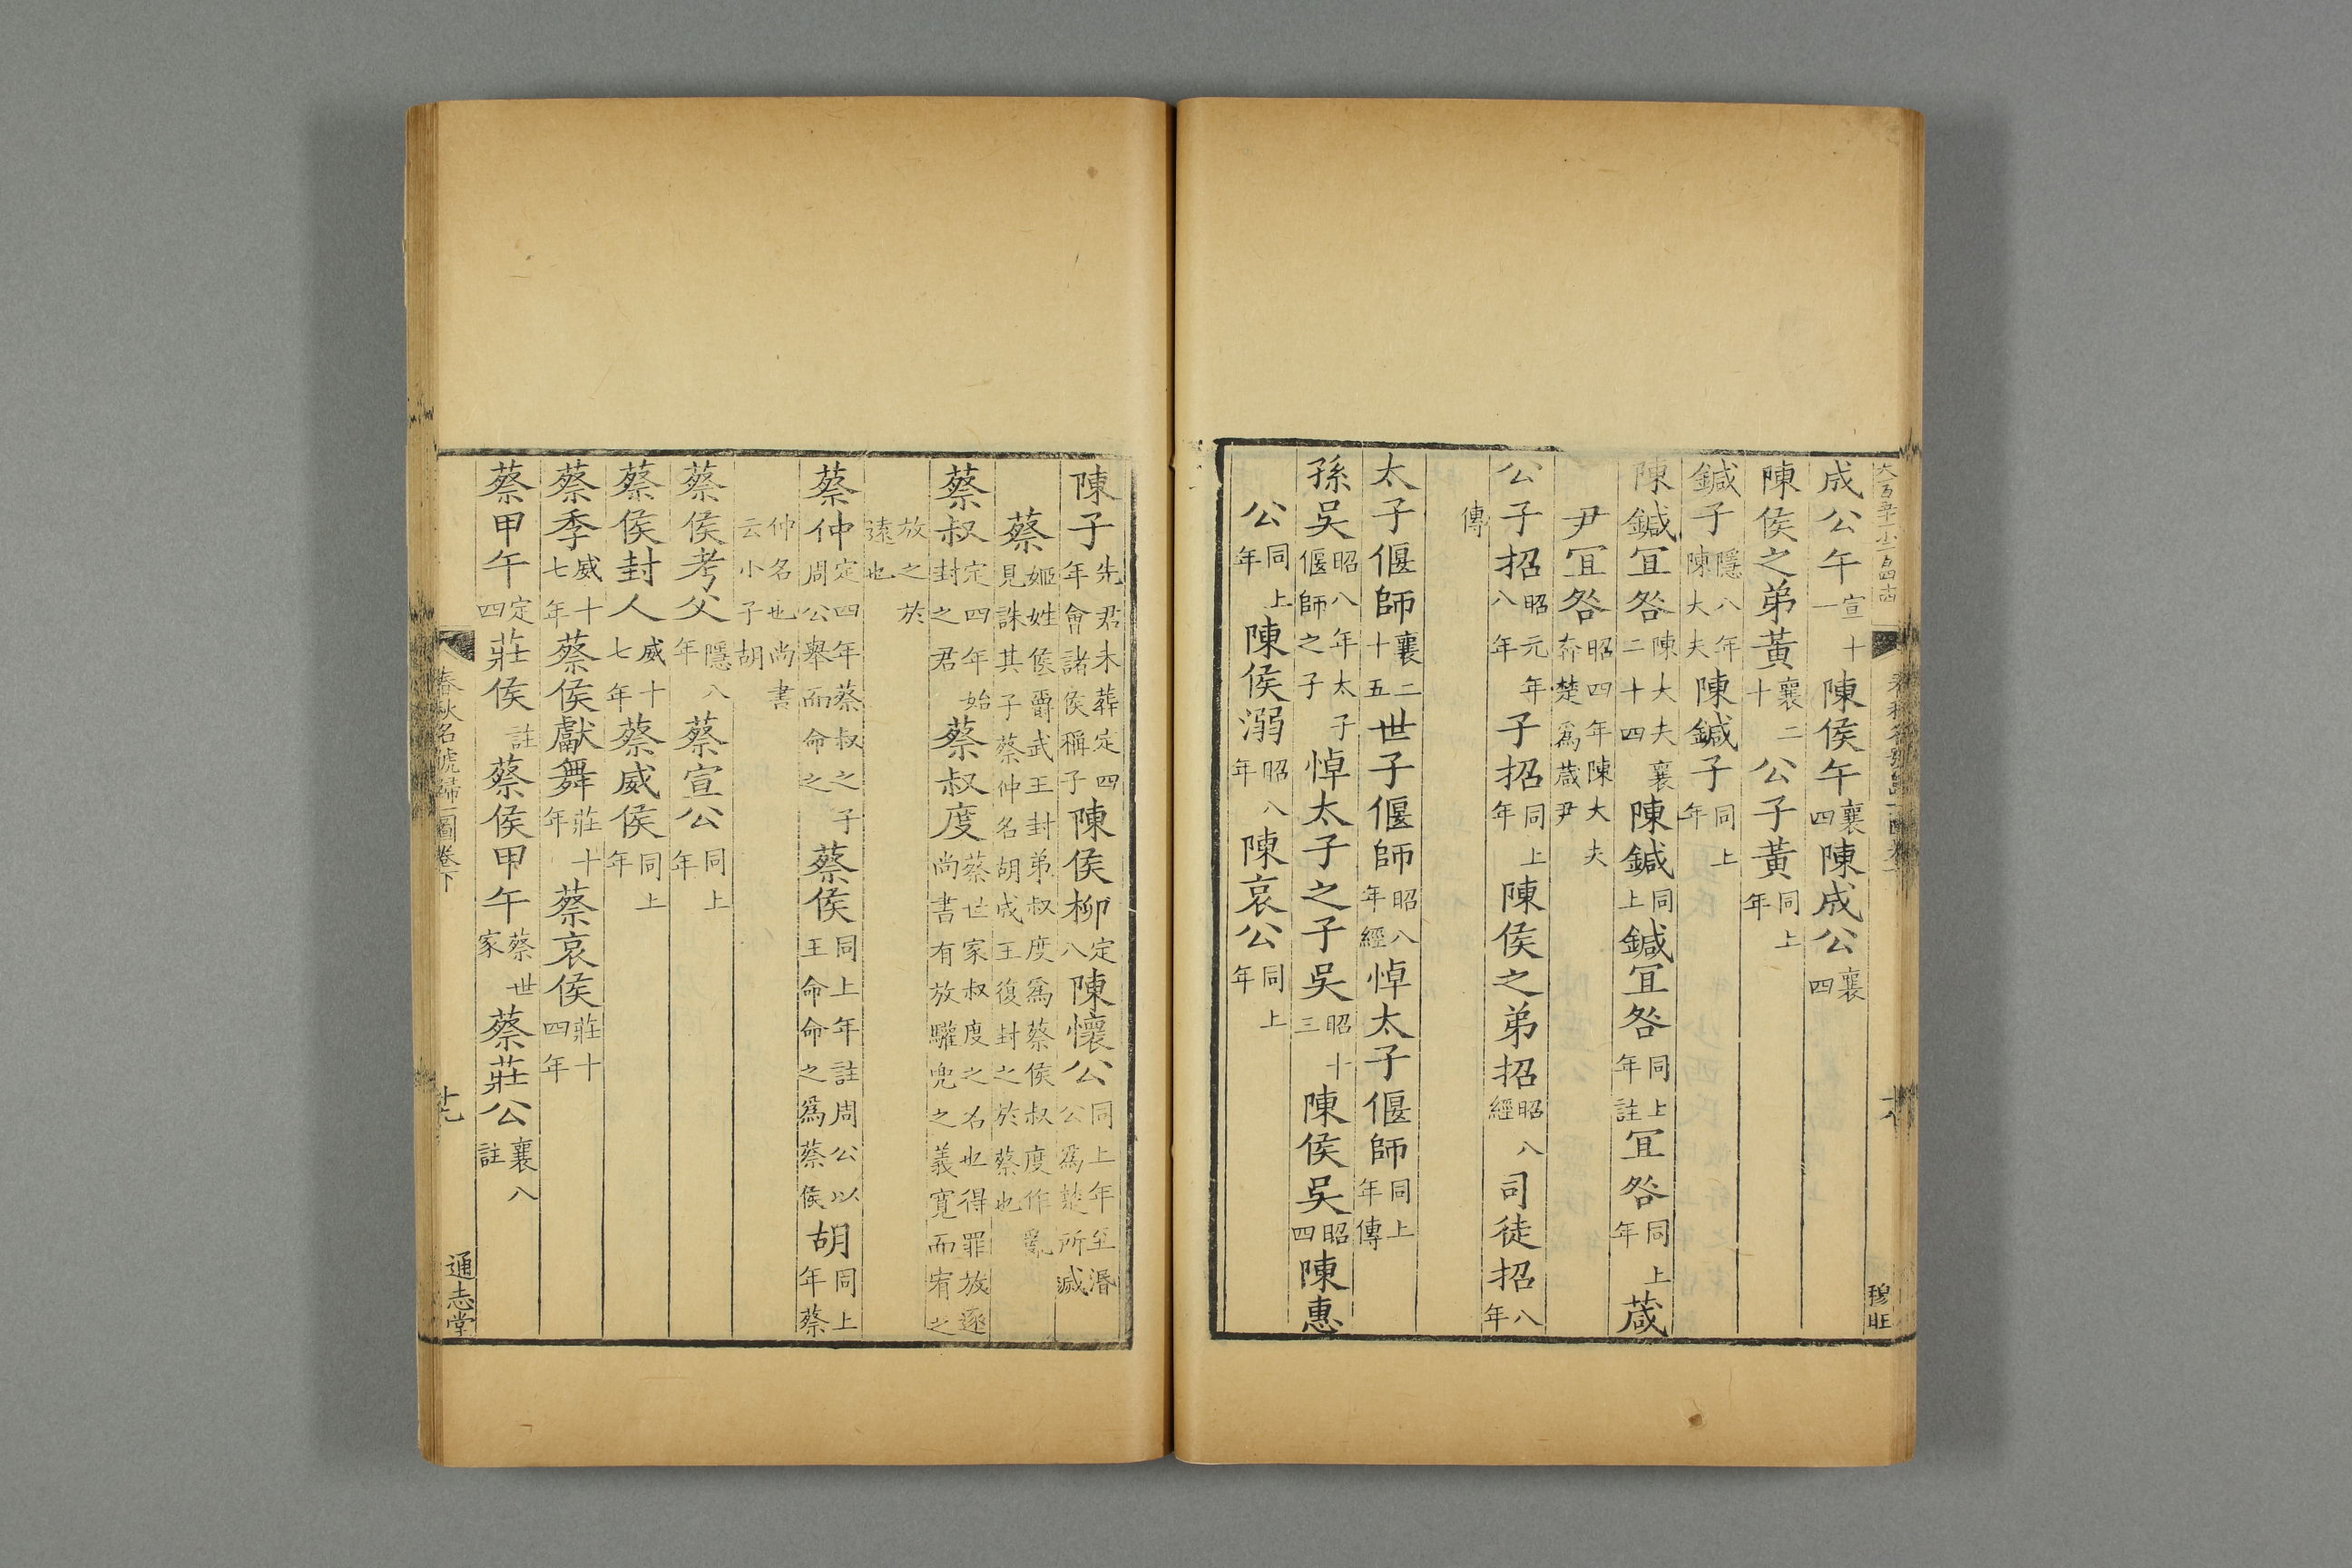 成公午宣十一陳侯午襄四陳成公襄四
陳侯之弟黃襄二十公子黃同上年
鍼子隱八年陳大夫陳鍼子同上年
陳鍼宜咎陳大夫襄二十四陳鍼同上鍼宜咎同上年註宜咎同上年葴
尹宜咎昭四年陳大夫奔楚爲葴尹
公子招昭元年八年子招同上年陳侯之弟招昭八經司徒招八年
傳
太子偃師襄二十五世子偃師昭八年經悼太子偃師同上年傳
孫吳昭八年太子偃師之子悼太子之子吳昭十三陳侯吳昭四陳惠
公同上年陳侯溺昭八年陳哀公同上年
穆旺
陳子先君未葬定四年會諸侯稱子陳侯柳定八陳懷公同上年至湣公爲楚所滅
蔡姬姓侯爵武王封弟叔度爲蔡侯叔度作亂見誅其子蔡仲名胡成王復封之於蔡也
蔡叔定四年始封之君蔡叔度蔡世家叔度之名也得罪放逐尚書有放驩兜之義寬而宥之
放之於遠也
蔡仲定四年蔡叔之子周公舉而命之蔡侯同上年註周公以王命命之爲蔡侯胡同上年蔡
仲名也尚書云小子胡
蔡侯考父隱八年蔡宣公同上年
蔡侯封人威十七年蔡威侯同上年
蔡季威十七年蔡侯獻舞莊十年蔡哀侯莊十四年
蔡甲午定四莊侯註蔡侯甲午蔡世家蔡莊公襄八註
春秋名號歸一圖卷下
十九
通志堂